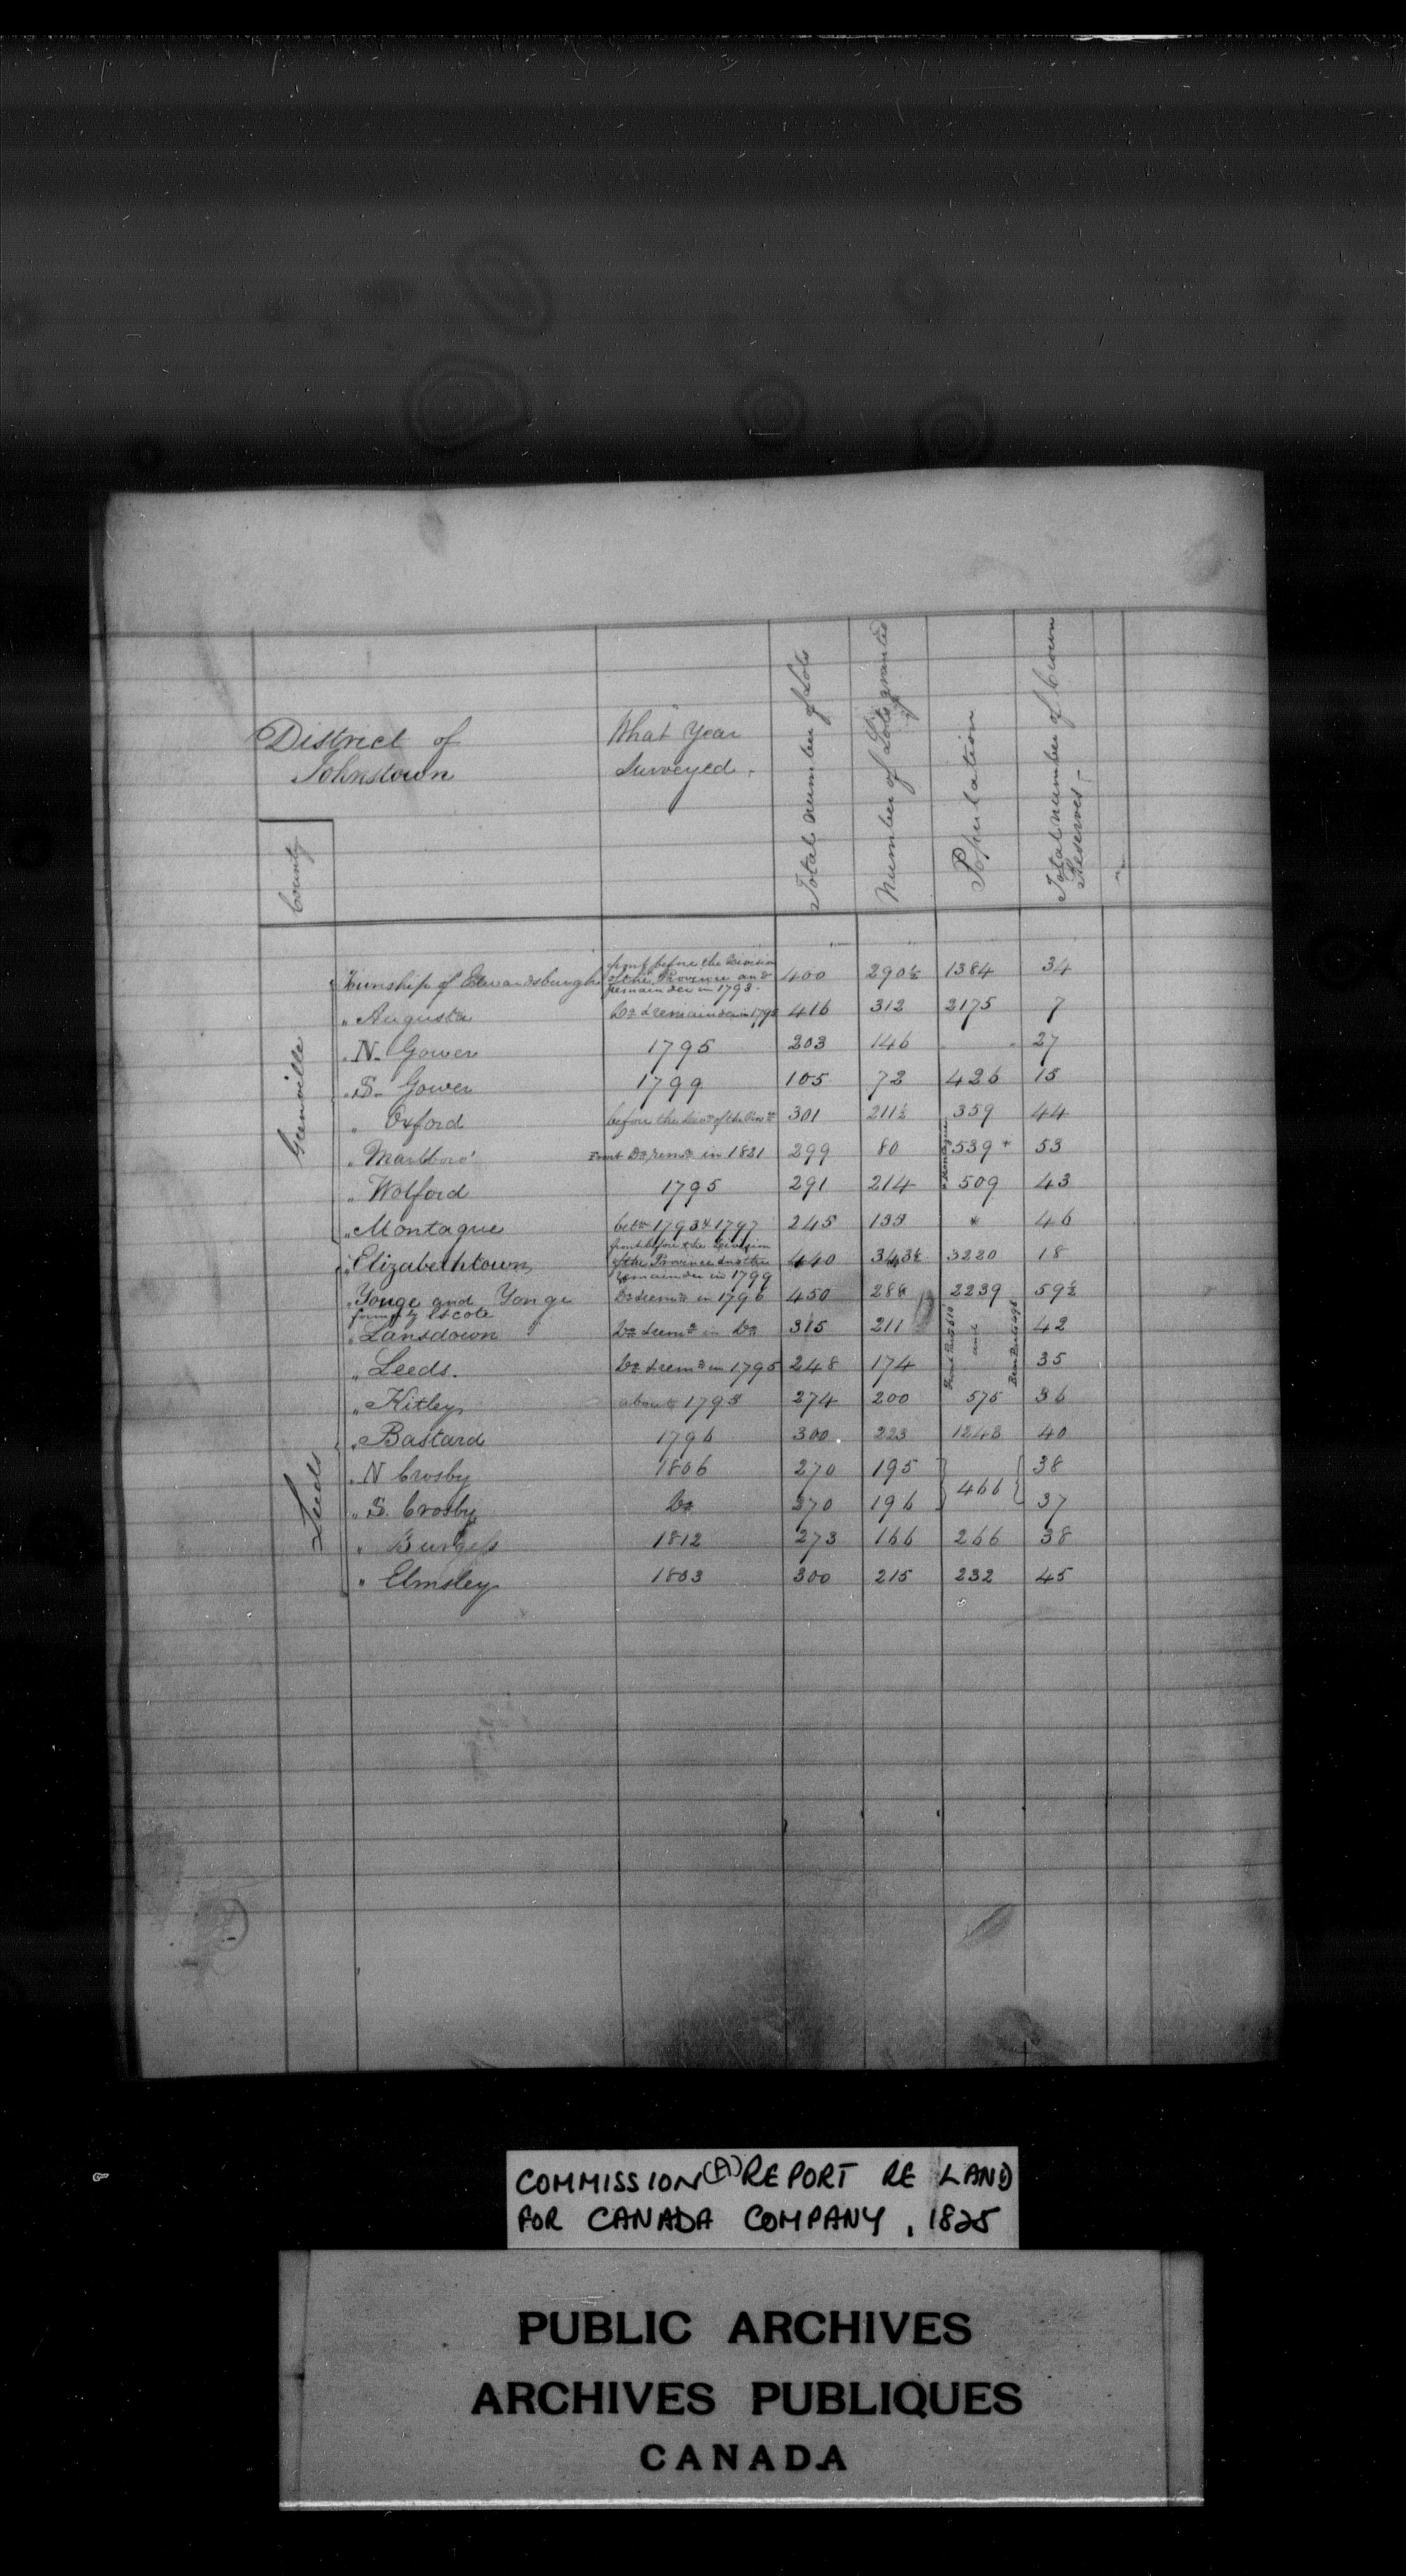 District of
Johnstown
County
What Year
Surveyed.
Total number of Lots
Number of Lots granted
Population
Total number of Crown
Reserves -
Grenville
Township of Edwardsburgh front before the Division of the Province and remainder in 1793. 400 290½ 1384 34
" Augusta Do & remainder in 416 312 2175 7
" N. Gower 1795 203 146 " " 27
" S. Gower 1799 105 72 426 15
" Oxford before the of the 301 211½ 359 44
" Marlboro' Front Do, remr in 1821 299 80 539 * 53
& Montague
" Wolford 1795 291 214 509 43
" Montague betn 1793 & 1797 245 133 * 46
Leeds
" Elizabethtown front before the Division of the Province and the remainder in 1799 440 343½ 3220 18
" Yonge and Yonge formly Escote Do & remr in 1796 450 2239 59½
" Lansdown Do & remr in Do 315 211 42
" Leeds. Do & remr in 1795 248 174 35
Front
and
Rear
" Kitley about 1793 274 200 575 36
" Bastard 1796 300 223 1243 40
" N Crosby 1806 270 195 38
466
" S. Crosby Do 270 196 37
" Burgess 1812 273 166 266 38
" Elmsley 1803 300 215 232 45
COMMISSION (A) REPORT RE LAND
FOR CANADA COMPANY, 1825
PUBLIC ARCHIVES
ARCHIVES PUBLIQUES
CANADA